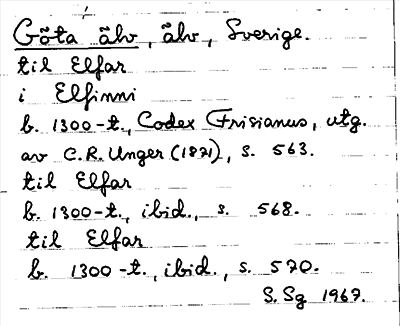 Göta älv, älv, Sverige.
til Elfar
i Elfinni
b. 1300-t., Codex Frisianus, utg.
av C.R. Unger (1871), s. 563.
til Elfar
b. 1300-t., ibid., s. 568.
til Elfar
b. 1300-t., ibid., s. 570.
S. Sg 1967.